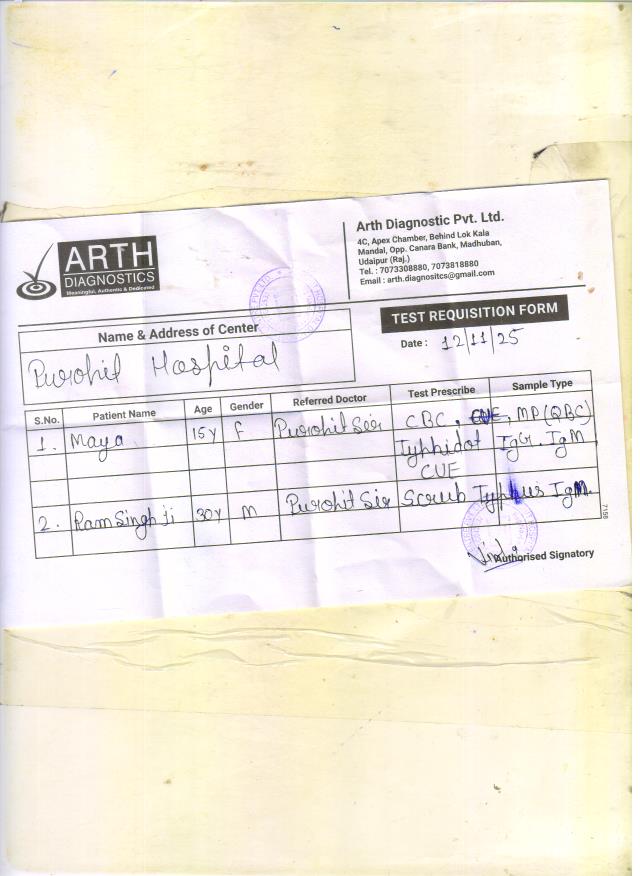 ARTH
DIAGNOSTICS
Meaningful, Authentic & Dedicated
Arth Diagnostic Pvt. Ltd.
4C, Apex Chamber, Behind Lok Kala
Mandal, Opp. Canara Bank, Madhuban,
Udaipur (Raj.)
Tel. : 7073308880, 7073818880
Email : arth.diagnositcs@gmail.com
TEST REQUISITION FORM
Date : 12/11/25
Name & Address of Center
Purohit Hospital
S.No. Patient Name Age Gender Referred Doctor Test Prescribe Sample Type
1. Maya 15Y F Purohit Sir CBC, CUE, MP(QBC)
Typhidot IgG. IgM
CUE
2. Ram Singh Ji 30Y M Purohit Sir Scrub Typhus IgM.
7158
Authorised Signatory